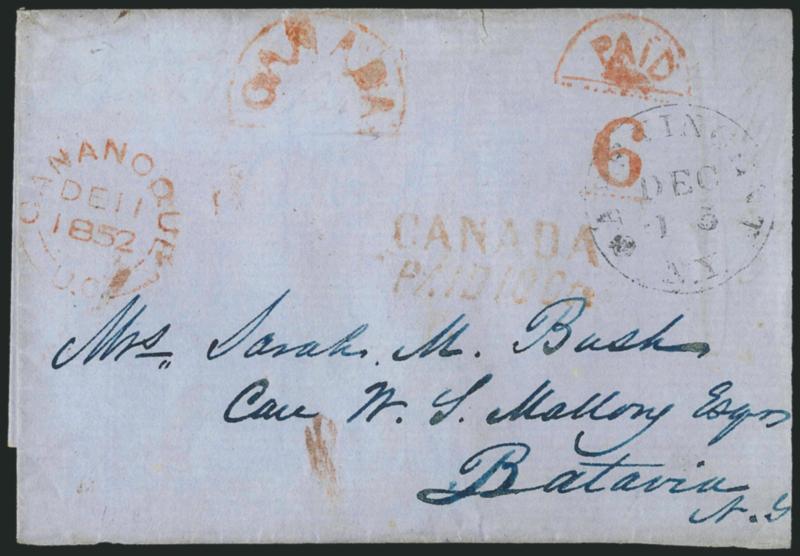 CANADA
PAID
6
GANANOQUE
DE 11
1852
U.C.
DEC
13
N.Y.
CANADA
PAID 10 Cts
Mrs. Sarah. M. Bush
Care W. S. Mallory Esqr
Batavia
N. Y